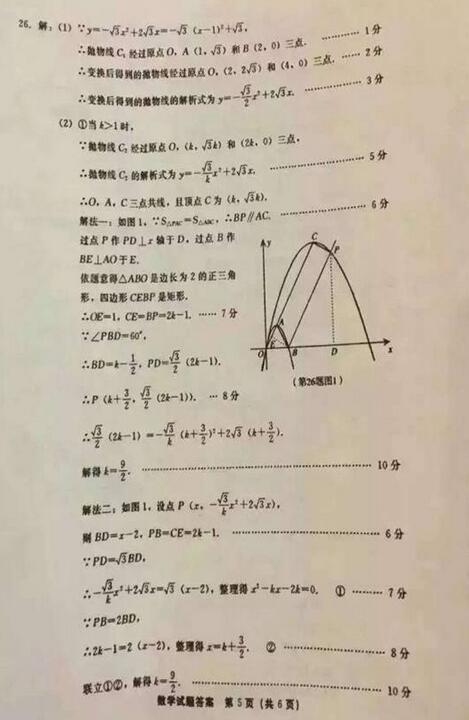 26. 解：(1) ∵y=-√3x²+2√3x=-√3 (x-1)²+√3,
∴抛物线 C₁ 经过原点 O，A (1, √3) 和 B (2, 0) 三点. ………… 1 分
∴变换后得到的抛物线经过原点 O, (2, 2√3) 和 (4, 0) 三点. …… 2 分
∴变换后得到的抛物线的解析式为 y=-√3/2x²+2√3x. ………… 3 分
(2) ①当 k>1 时,
∵抛物线 C₂ 经过原点 O, (k, √3k) 和 (2k, 0) 三点,
∴抛物线 C₂ 的解析式为 y=-√3/kx²+2√3x. ………… 5 分
∴O、A、C 三点共线，且顶点 C 为 (k, √3k). ………… 6 分
解法一：如图 1, ∵S△PAC=S△ABC, ∴BP∥AC.
过点 P 作 PD⊥x 轴于 D，过点 B 作
BE⊥AO 于 E.
依题意得△ABO 是边长为 2 的正三角
形，四边形 CEBP 是矩形.
∴OE=1, CE=BP=2k-1. …… 7 分
∵∠PBD=60°,
∴BD=k-1/2, PD=√3/2 (2k-1).
∴P (k+3/2, √3/2 (2k-1)). … 8 分
∴√3/2 (2k-1) =-√3/k (k+3/2)²+2√3 (k+3/2).
解得 k=9/2. ………… 10 分
y
C
P
A
E
O
B
D
x
(第26题图1)
解法二：如图 1，设点 P (x, -√3/kx²+2√3x),
则 BD=x-2, PB=CE=2k-1. ………… 6 分
∵PD=√3BD,
∴-√3/kx²+2√3x=√3 (x-2), 整理得 x²-kx-2k=0. ① ……… 7 分
∵PB=2BD,
∴2k-1=2 (x-2), 整理得 x=k+3/2. ② ………… 8 分
联立①②，解得 k=9/2. ………… 10 分
数学试题答案 第 5 页（共 6 页）